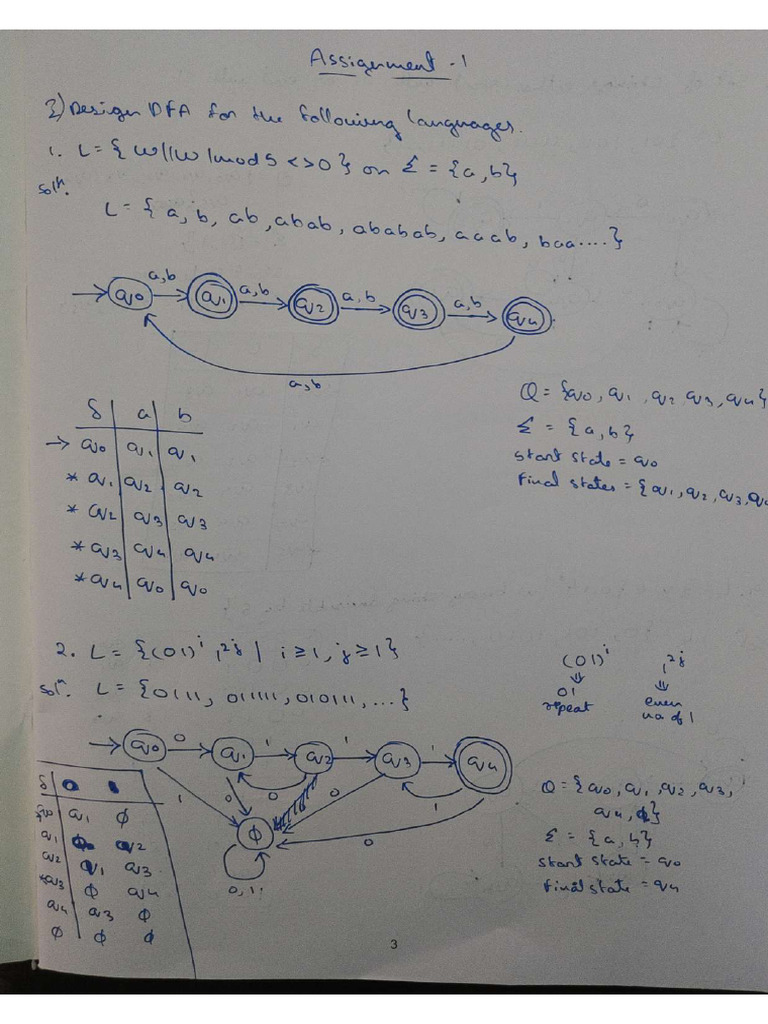 Assignment - 1
3) Design DFA for the following languages.
1. L = { w | |w| mod 5 <> 0 } on Σ = {a, b}
Solⁿ.
L = { a, b, ab, abab, ababab, aaab, baa .... }
a,b a,b a,b a,b
q0 q1 q2 q3 q4
a,b
δ | a | b
→ q0 | q1 | q1
* q1 | q2 | q2
* q2 | q3 | q3
* q3 | q4 | q4
* q4 | q0 | q0
Q = {q0, q1, q2 q3, q4}
Σ = {a, b}
start state = q0
Final states = {q1, q2, q3, q4
2. L = {(01)ⁱ 1²ʲ | i ≥ 1, j ≥ 1}
(01)ⁱ 1²ʲ
⇓ ⇓
01 even
repeat no of 1
Solⁿ. L = {0111, 011111, 010111, ...}
0 1 1 1
q0 q1 q2 q3 q4
1 0 0 0 1
ϕ 0
0, 1
δ
q0 | q1 | ϕ
q1 | ϕ | q2
q2 | q1 | q3
*q3 | ϕ | q4
q4 | q3 | ϕ
ϕ | ϕ | ϕ
Q = {q0, q1, q2, q3,
q4, ϕ}
Σ = {a, b}
start state = q0
final state = q4
3